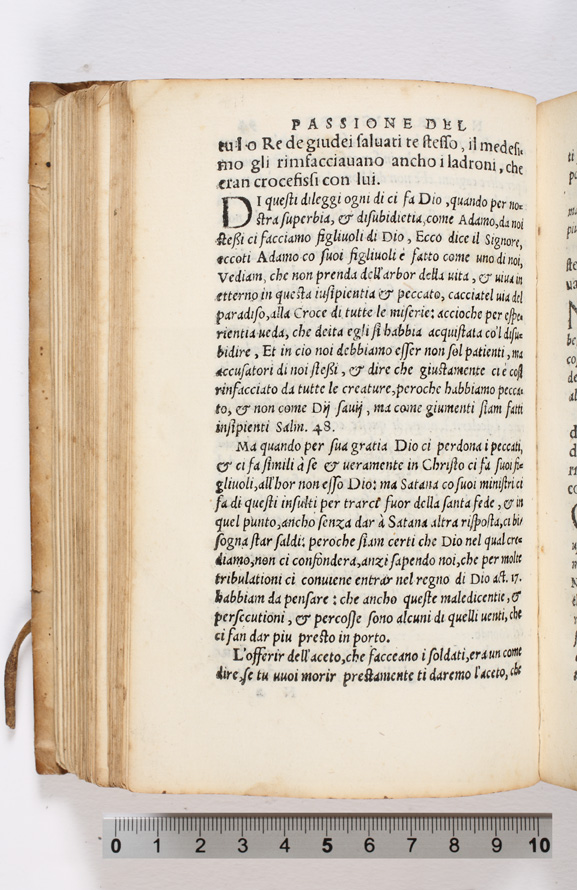 PASSIONE DEL
tu lo Re de giudei saluati te stesso, il medesi-
mo gli rimfacciauano ancho i ladroni, che
eran crocefissi con lui.
DI questi dileggi ogni di ci fa Dio, quando per no-
stra superbia, & disubidiētia, come Adamo, da noi
stessi ci facciamo figliuoli di Dio, Ecco dice il Signore,
eccoti Adamo co suoi figliuoli è fatto come uno di noi,
Vediam, che non prenda dell'arbor della uita, & uiua in
etterno in questa insipientia & peccato, cacciatel uia del
paradiso, alla Croce di tutte le miserie: accioche per espe-
rientia ueda, che deita egli si habbia acquistata co'l disu-
bidire, Et in cio noi debbiamo esser non sol patienti, ma
accusatori di noi stessi, & dire che giustamente ci è cosi
rinfacciato da tutte le creature, peroche habbiamo pecca-
to, & non come Dij sauij, ma come giumenti siam fatti
insipienti Salm. 48.
Ma quando per sua gratia Dio ci perdona i peccati,
& ci fa simili à se & ueramente in Christo ci fa suoi fi-
gliuoli, all'hor non esso Dio: ma Satana co suoi ministri ci
fa di questi insulti per trarci fuor della santa fede, & in
quel punto, ancho senza dar à Satana altra risposta, ci bi-
sogna star saldi: peroche siam certi che Dio nel qual cre-
diamo, non ci confondera, anzi sapendo noi, che per molte
tribulationi ci conuiene entrar nel regno di Dio act. 17.
habbiam da pensare: che ancho queste maledicentie, &
persecutioni, & percosse sono alcuni di quelli uenti, che
ci fan dar piu presto in porto.
L'offerir dell'aceto, che facceano i soldati, era un come
dire, se tu uuoi morir prestamente ti daremo l'aceto, che
0 1 2 3 4 5 6 7 8 9 10